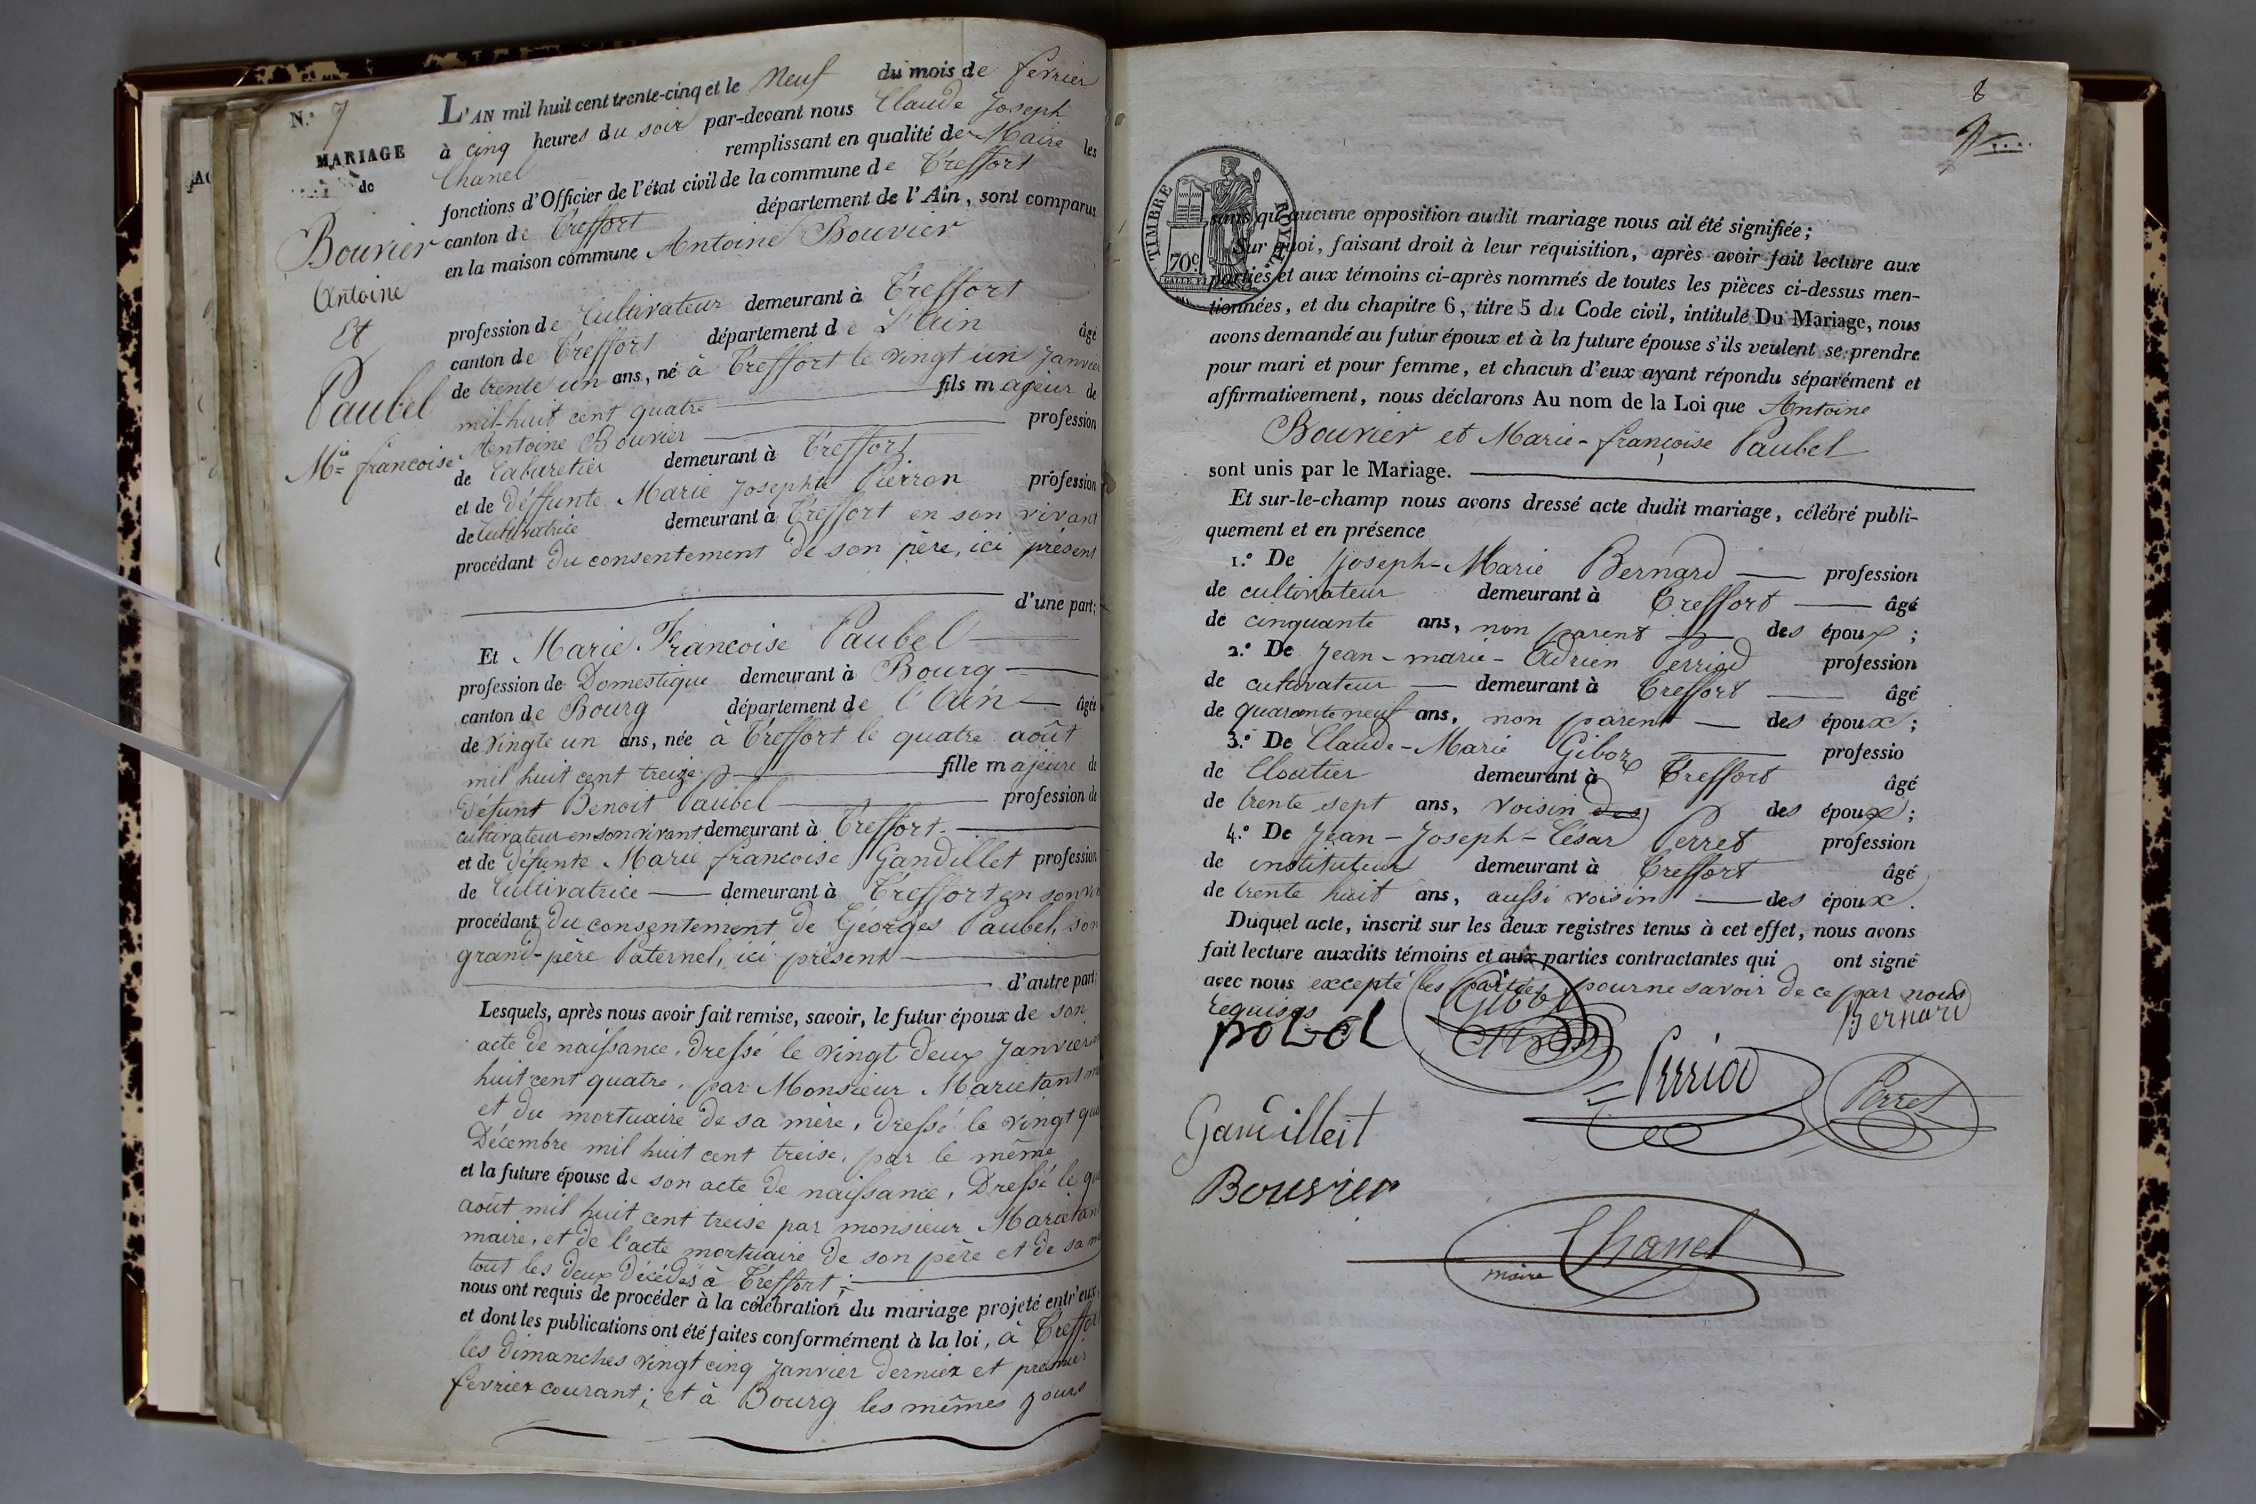 N.° 7
MARIAGE
de
Bouvier
Antoine
Et
Paubel
M.ie francoise
L'AN mil huit cent trente-cinq et le Neuf du mois de fevrier
à cinq heures du soir par-devant nous Claude Joseph
Chanel remplissant en qualité de Maire les
fonctions d'Officier de l'état civil de la commune de Treffort
canton de Treffort département de l'Ain, sont comparus
en la maison commune Antoine Bouvier
profession de Cultivateur demeurant à Treffort
canton de Treffort département de L'Ain âgé
de trente un ans, né à Treffort le vingt un Janvier
mil-huit cent quatre fils majeur de
Antoine Bouvier profession
de Cabaretier demeurant à Treffort
et de déffunte Marie Josephte Pierron profession
de Cultivatrice demeurant à Treffort en son vivant
procédant du consentement de son père, ici présent
d'une part;
Et Marie Francoise Paubel
profession de Domestique demeurant à Bourg
canton de Bourg département de l'Ain âgée
de vingte un ans, née à Treffort le quatre août
mil huit cent treize fille majeure de
Défunt Benoit Paubel profession de
cultivateur en son vivant demeurant à Treffort
et de défunte Marie francoise Gandillet profession
de Cultivatrice demeurant à Treffort en son viv
procédant du consentement de Géorges Paubel, son
grand-père Paternel, ici présent
d'autre part;
Lesquels, après nous avoir fait remise, savoir, le futur époux de son
acte de naissance, dressé le vingt deux Janvier
huit cent quatre, par Monsieur Marietant
et du mortuaire de sa mère, dressé le vingt
Décembre mil huit cent treise, par le même
et la future épouse de son acte de naissance, Dressé le
août mil huit cent treise par monsieur Marietan
maire, et de l'acte mortuaire de son père et de sa
tout les deux décédés à Treffort;
nous ont requis de procéder à la célébration du mariage projeté entr'eux,
et dont les publications ont été faites conformément à la loi, à Treffort
les dimanches vingt cinq Janvier dernier et premier
fevrier courant; et à Bourg les mêmes jours
8
TIMBRE ROYAL
70c
sans qu'aucune opposition audit mariage nous ait été signifiée;
Sur quoi, faisant droit à leur réquisition, après avoir fait lecture aux
parties et aux témoins ci-après nommés de toutes les pièces ci-dessus men-
tionnées, et du chapitre 6, titre 5 du Code civil, intitulé Du Mariage, nous
avons demandé au futur époux et à la future épouse s'ils veulent se prendre
pour mari et pour femme, et chacun d'eux ayant répondu séparément et
affirmativement, nous déclarons Au nom de la Loi que Antoine
Bouvier et Marie-françoise Paubel
sont unis par le Mariage.
Et sur-le-champ nous avons dressé acte dudit mariage, célébré publi-
quement et en présence
1.° De Joseph-Marie Bernard profession
de cultivateur demeurant à Treffort âgé
de cinquante ans, non parent des époux;
2.° De Jean-marie-Adrien Perriod profession
de cultivateur demeurant à Treffort âgé
de quarante neuf ans, non parent des époux;
3.° De Claude-Marie Giboz professio
de Cloutier demeurant à Treffort âgé
de trente sept ans, voisin des des époux;
4.° De Jean-Joseph-César Perret profession
de instituteur demeurant à Treffort âgé
de trente huit ans, aussi voisin des époux.
Duquel acte, inscrit sur les deux registres tenus à cet effet, nous avons
fait lecture auxdits témoins et aux parties contractantes qui ont signé
avec nous excepté les parties, pour ne savoir de ce par nous
requises
pobel
Giboz
Bernard
Perriod
Perret
Gandilleit
Bouvier
maire Chanel